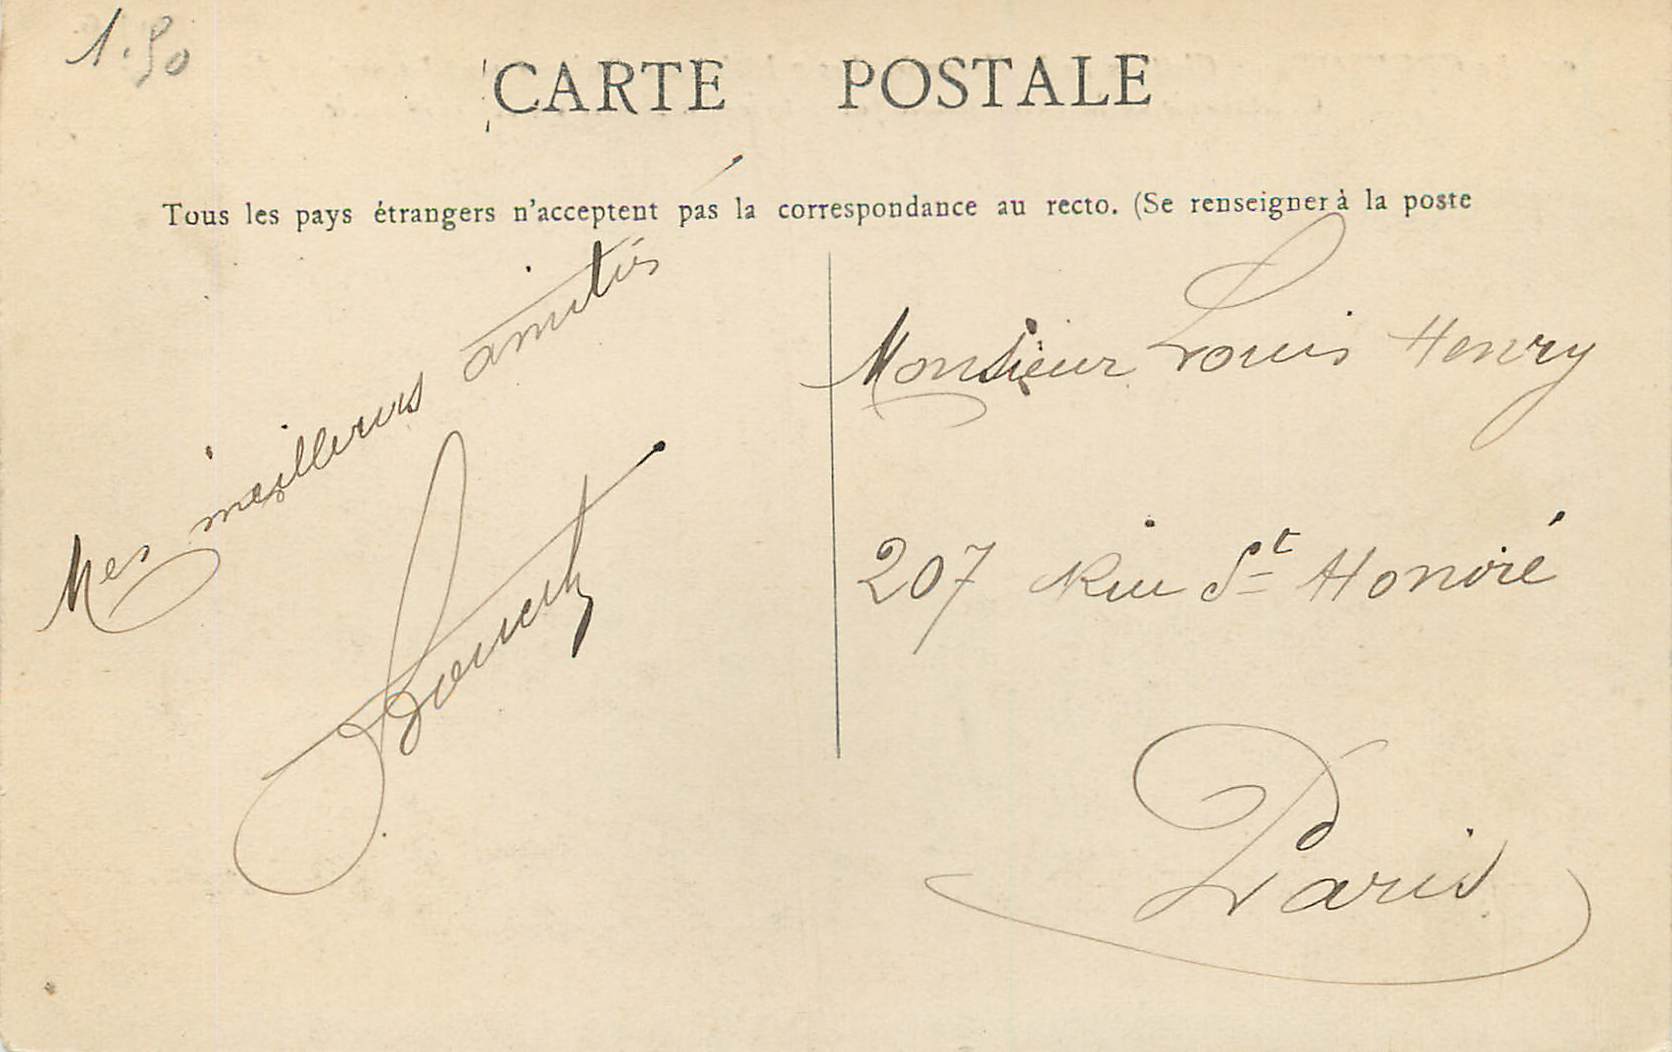 1.50
CARTE POSTALE
Tous les pays étrangers n'acceptent pas la correspondance au recto. (Se renseigner à la poste
Mes meilleures amitiés
Monsieur Louis Henry
207 Rue St Honoré
Paris